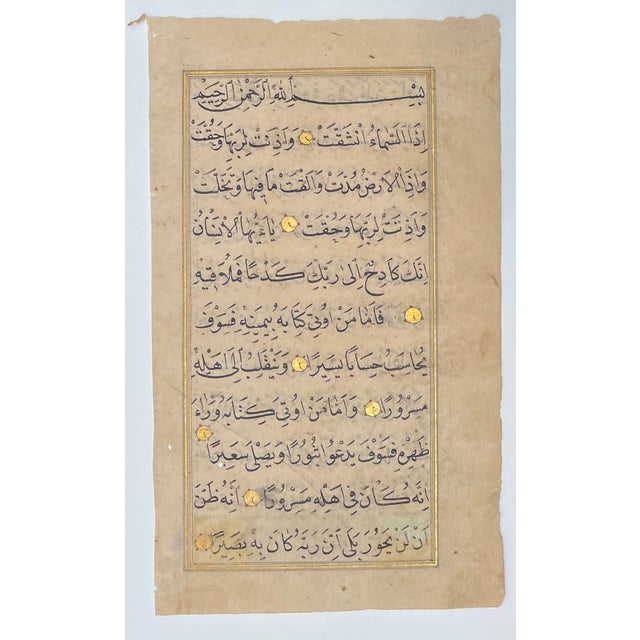 بِسْمِ اللهِ الرَّحْمٰنِ الرَّحِيْمِ
اِذَا السَّمَاءُ انْشَقَّتْ وَاَذِنَتْ لِرَبِّهَا وَحُقَّتْ
وَاِذَا الْاَرْضُ مُدَّتْ وَاَلْقَتْ مَا فِيهَا وَتَخَلَّتْ
وَاَذِنَتْ لِرَبِّهَا وَحُقَّتْ يَاءَيُّهَا الْاِنْسَانُ
اِنَّكَ كَادِحٌ اِلٰى رَبِّكَ كَدْحًا فَمُلَاقِيهِ
فَاَمَّا مَنْ اُوتِىَ كِتَابَهُ بِيَمِينِهِ فَسَوْفَ
يُحَاسَبُ حِسَابًا يَسِيرًا وَيَنْقَلِبُ اِلٰى اَهْلِهِ
مَسْرُورًا وَاَمَّا مَنْ اُوتِىَ كِتَابَهُ وَرَاءَ
ظَهْرِهِ فَسَوْفَ يَدْعُوا ثُبُورًا وَيَصْلٰى سَعِيرًا
اِنَّهُ كَانَ فِى اَهْلِهِ مَسْرُورًا اِنَّهُ ظَنَّ
اَنْ لَنْ يَحُورَ بَلٰى اِنَّ رَبَّهُ كَانَ بِهِ بَصِيرًا